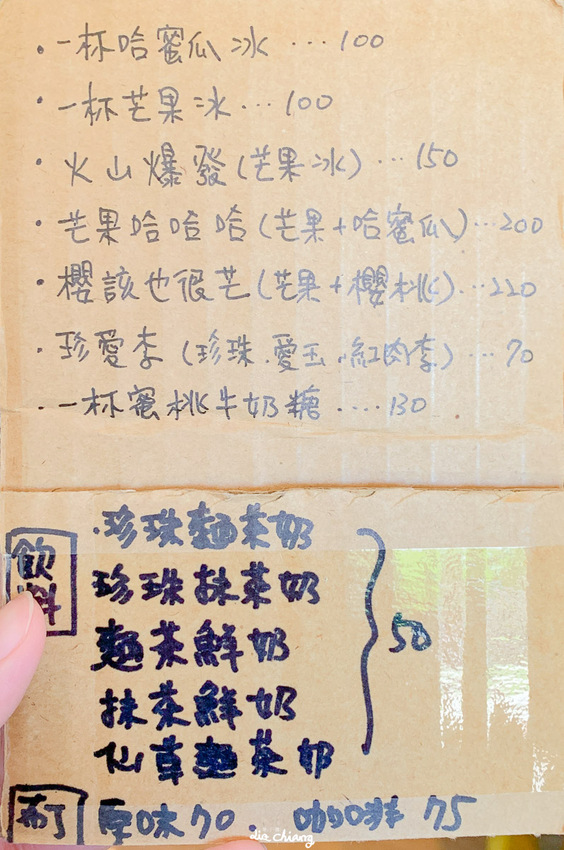 ·一杯哈蜜瓜冰…100
·一杯芒果冰…100
·火山爆發(芒果冰)…150
·芒果哈哈哈(芒果+哈蜜瓜)…200
·櫻該也很芒(芒果+櫻桃)…220
·珍愛李(珍珠.愛玉.紅肉李)…70
·一杯蜜桃牛奶糖....130
飲料
·珍珠麵茶奶
珍珠抹茶奶
麵茶鮮奶
抹茶鮮奶
仙草麵茶奶
50
布丁 原味70. 咖啡75
lio chiang